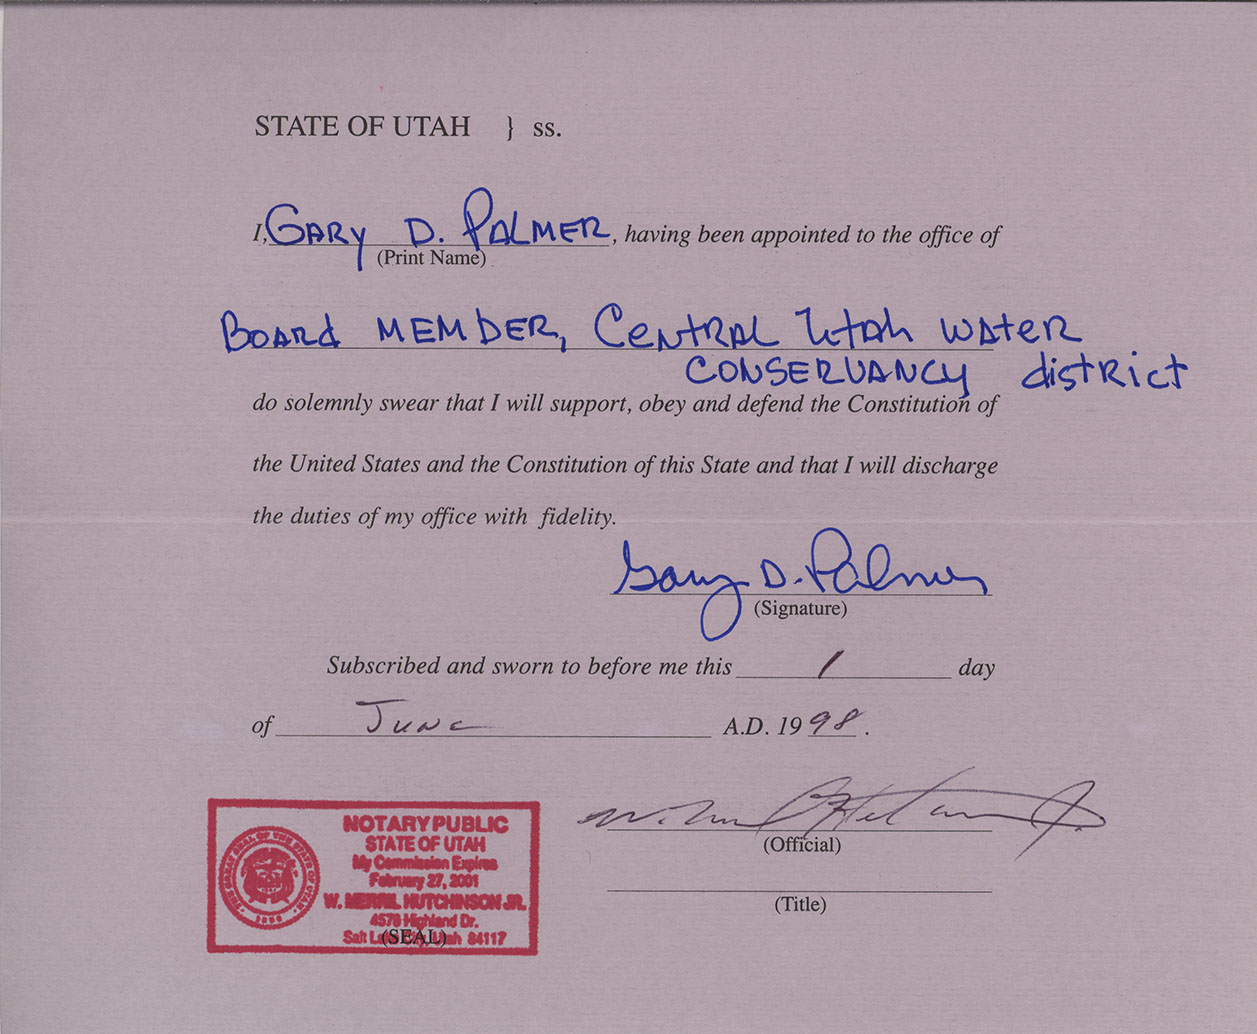 STATE OF UTAH } ss.
I, GARY D. PALMER, having been appointed to the office of
(Print Name)
BOARD MEMBER, CENTRAL Utah WATER
CONSERVANCY district
do solemnly swear that I will support, obey and defend the Constitution of
the United States and the Constitution of this State and that I will discharge
the duties of my office with fidelity.
Gary D. Palmer
(Signature)
Subscribed and sworn to before me this 1 day
of June A.D. 1998.
(Official)
(Title)
NOTARY PUBLIC
STATE OF UTAH
My Commission Expires
February 27, 2001
W. MERRIL HUTCHINSON JR.
4578 Highland Dr.
Salt Utah 84117
(SEAL)